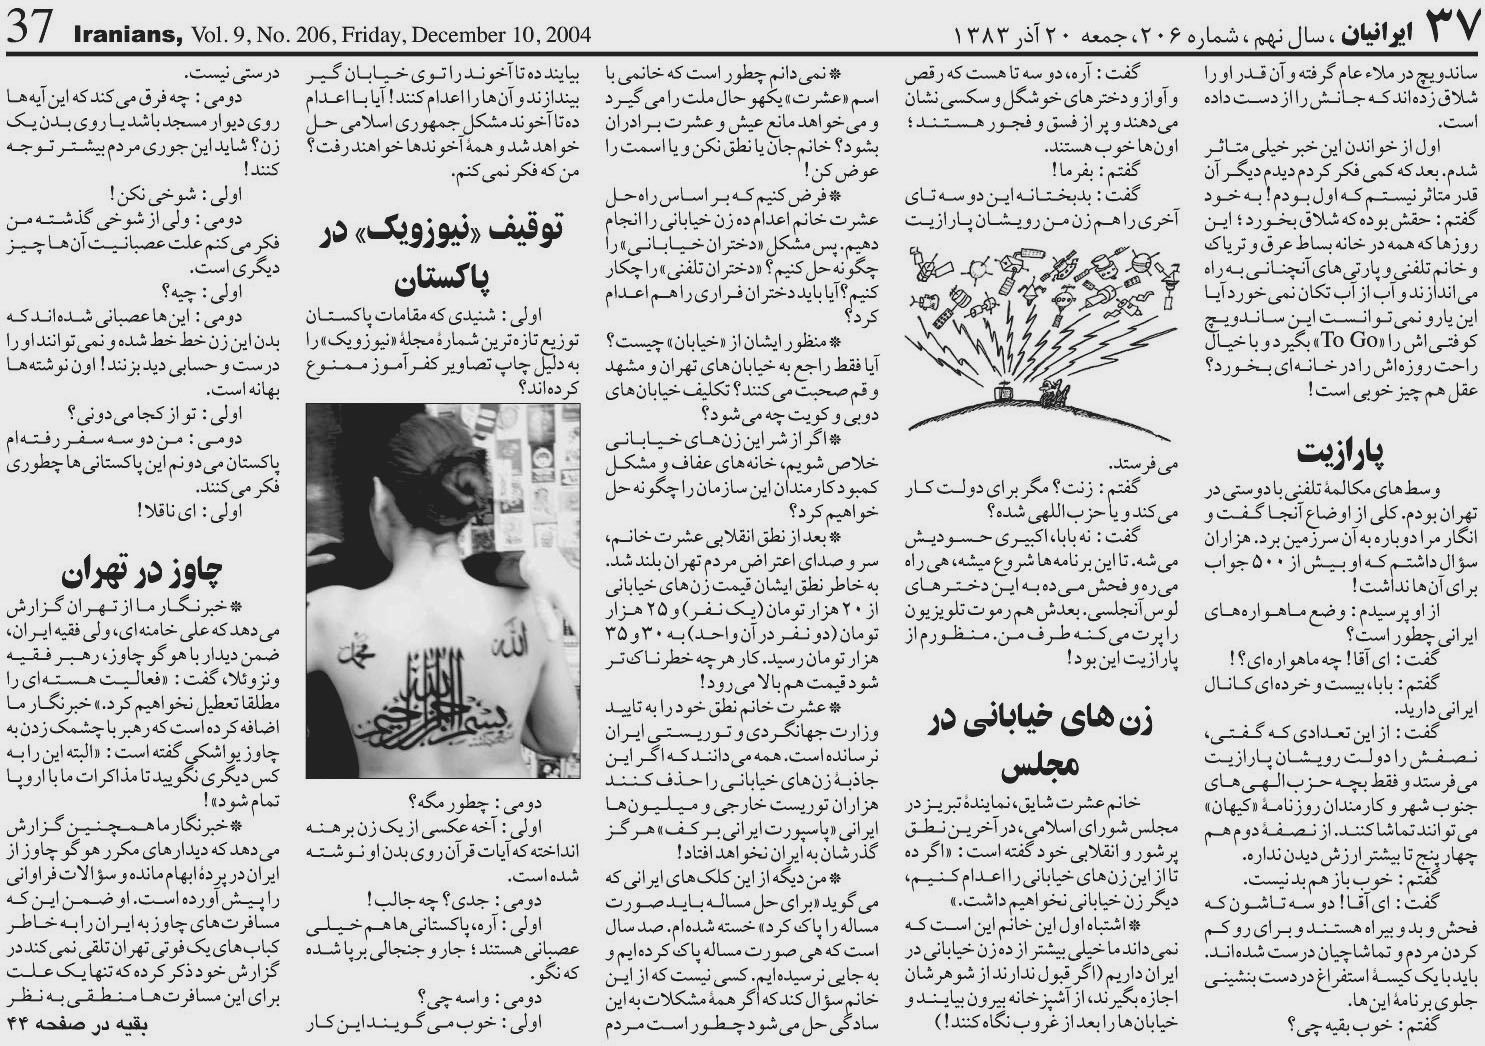 37 Iranians, Vol. 9, No. 206, Friday, December 10, 2004
۳۷ ایرانیان، سال نهم، شماره ۲۰۶، جمعه ۲۰ آذر ۱۳۸۳
ساندویچ در ملاء عام گرفته و آن قدر او را
شلاق زده‌اند که جانش را از دست داده
است.
اول از خواندن این خبر خیلی متاثر
شدم. بعد که کمی فکر کردم دیدم دیگر آن
قدر متاثر نیستم که اول بودم! به خود
گفتم: حقش بوده که شلاق بخورد؛ این
روزها که همه در خانه بساط عرق و تریاک
و خانم تلفنی و پارتی‌های آنچنانی به راه
می‌اندازند و آب از آب تکان نمی‌خورد آیا
این یارو نمی‌توانست این ساندویچ
کوفتی‌اش را «To Go» بگیرد و با خیال
راحت روزه‌اش را در خانه‌ای بخورد؟
عقل هم چیز خوبی است!
پارازیت
وسط‌های مکالمهٔ تلفنی با دوستی در
تهران بودم. کلی از اوضاع آنجا گفت و
انگار مرا دوباره به آن سرزمین برد. هزاران
سؤال داشتم که او بیش از ۵۰۰ جواب
برای آن‌ها نداشت!
از او پرسیدم: وضع ماهواره‌های
ایرانی چطور است؟
گفت: ای آقا! چه ماهواره‌ای؟!
گفتم: بابا، بیست و خرده‌ای کانال
ایرانی دارید.
گفت: از این تعدادی که گفتی،
نصفش را دولت رویشان پارازیت
می‌فرستد و فقط بچه حزب‌الهی‌های
جنوب شهر و کارمندان روزنامهٔ «کیهان»
می‌توانند تماشا کنند. از نصفهٔ دوم هم
چهار پنج تا بیشتر ارزش دیدن نداره.
گفتم: خوب باز هم بد نیست.
گفت: ای آقا! دو سه تاشون که
فحش و بد و بیراه هستند و برای رو کم
کردن مردم و تماشاچیان درست شده‌اند.
باید با یک کیسهٔ استفراغ در دست بنشینی
جلوی برنامهٔ این‌ها.
گفتم: خوب بقیه چی؟
گفت: آره، دو سه تا هست که رقص
و آواز و دخترهای خوشگل و سکسی نشان
می‌دهند و پر از فسق و فجور هستند؛
اون‌ها خوب هستند.
گفتم: بفرما!
گفت: بدبختانه این دو سه تای
آخری را هم زن من رویشان پارازیت
می‌فرستد.
گفتم: زنت؟ مگر برای دولت کار
می‌کند و یا حزب‌اللهی شده؟
گفت: نه بابا، اکبیری حسودیش
می‌شه. تا این برنامه‌ها شروع میشه، هی راه
می‌ره و فحش می‌ده به این دخترهای
لوس آنجلسی. بعدش هم رموت تلویزیون
را پرت می‌کنه طرف من. منظورم از
پارازیت این بود!
زن‌های خیابانی در
مجلس
خانم عشرت شایق، نمایندهٔ تبریز در
مجلس شورای اسلامی، در آخرین نطق
پرشور و انقلابی خود گفته است: «اگر ده
تا از این زن‌های خیابانی را اعدام کنیم،
دیگر زن خیابانی نخواهیم داشت.»
✻ اشتباه اول این خانم این است که
نمی‌داند ما خیلی بیشتر از ده زن خیابانی در
ایران داریم (اگر قبول ندارند از شوهرشان
اجازه بگیرند، از آشپزخانه بیرون بیایند و
خیابان‌ها را بعد از غروب نگاه کنند!)
✻ نمی‌دانم چطور است که خانمی با
اسم «عشرت» یکهو حال ملت را می‌گیرد
و می‌خواهد مانع عیش و عشرت برادران
بشود؟ خانم جان یا نطق نکن و یا اسمت را
عوض کن!
✻ فرض کنیم که بر اساس راه حل
عشرت خانم اعدام ده زن خیابانی را انجام
دهیم. پس مشکل «دختران خیابانی» را
چگونه حل کنیم؟ «دختران تلفنی» را چکار
کنیم؟ آیا باید دختران فراری را هم اعدام
کرد؟
✻ منظور ایشان از «خیابان» چیست؟
آیا فقط راجع به خیابان‌های تهران و مشهد
و قم صحبت می‌کنند؟ تکلیف خیابان‌های
دوبی و کویت چه می‌شود؟
✻ اگر از شر این زن‌های خیابانی
خلاص شویم، خانه‌های عفاف و مشکل
کمبود کارمندان این سازمان را چگونه حل
خواهیم کرد؟
✻ بعد از نطق انقلابی عشرت خانم،
سر و صدای اعتراض مردم تهران بلند شد.
به خاطر نطق ایشان قیمت زن‌های خیابانی
از ۲۰ هزار تومان (یک نفر) و ۲۵ هزار
تومان (دو نفر در آن واحد) به ۳۰ و ۳۵
هزار تومان رسید. کار هر چه خطرناک‌تر
شود قیمت هم بالا می‌رود!
✻ عشرت خانم نطق خود را به تایید
وزارت جهانگردی و توریستی ایران
نرسانده است. همه می‌دانند که اگر این
جاذبهٔ زن‌های خیابانی را حذف کنند
هزاران توریست خارجی و میلیون‌ها
ایرانی «پاسپورت ایرانی بر کف» هرگز
گذرشان به ایران نخواهد افتاد!
✻ من دیگه از این کلک‌های ایرانی که
می‌گوید «برای حل مساله باید صورت
مساله را پاک کرد» خسته شده‌ام. صد سال
است که هی صورت مساله پاک کرده‌ایم و
به جایی نرسیده‌ایم. کسی نیست که از این
خانم سؤال کند که اگر همهٔ مشکلات به این
سادگی حل می‌شود چطور است مردم
بیایند ده تا آخوند را توی خیابان گیر
بیندازند و آن‌ها را اعدام کنند! آیا با اعدام
ده تا آخوند مشکل جمهوری اسلامی حل
خواهد شد و همهٔ آخوندها خواهند رفت؟
من که فکر نمی‌کنم.
توقیف «نیوزویک» در
پاکستان
اولی: شنیدی که مقامات پاکستان
توزیع تازه‌ترین شمارهٔ مجلهٔ «نیوزویک» را
به دلیل چاپ تصاویر کفرآموز ممنوع
کرده‌اند؟
الله
محمد
بسم الله الرحمن الرحیم
دومی: چطور مگه؟
اولی: آخه عکسی از یک زن برهنه
انداخته که آیات قرآن روی بدن او نوشته
شده است.
دومی: جدی؟ چه جالب!
اولی: آره، پاکستانی‌ها هم خیلی
عصبانی هستند؛ جار و جنجالی برپا شده
که نگو.
دومی: واسه چی؟
اولی: خوب می‌گویند این کار
درستی نیست.
دومی: چه فرق می‌کند که این آیه‌ها
روی دیوار مسجد باشد یا روی بدن یک
زن؟ شاید این جوری مردم بیشتر توجه
کنند!
اولی: شوخی نکن!
دومی: ولی از شوخی گذشته من
فکر می‌کنم علت عصبانیت آن‌ها چیز
دیگری است.
اولی: چیه؟
دومی: این‌ها عصبانی شده‌اند که
بدن این زن خط خط شده و نمی‌توانند او را
درست و حسابی دید بزنند! اون نوشته‌ها
بهانه است.
اولی: تو از کجا می‌دونی؟
دومی: من دو سه سفر رفته‌ام
پاکستان می‌دونم این پاکستانی‌ها چطوری
فکر می‌کنند.
اولی: ای ناقلا!
چاوز در تهران
✻ خبرنگار ما از تهران گزارش
می‌دهد که علی خامنه‌ای، ولی فقیه ایران،
ضمن دیدار با هوگو چاوز، رهبر فقیه
ونزوئلا، گفت: «فعالیت هسته‌ای را
مطلقا تعطیل نخواهیم کرد.» خبرنگار ما
اضافه کرده است که رهبر با چشمک زدن به
چاوز یواشکی گفته است: «البته این را به
کس دیگری نگویید تا مذاکرات ما با اروپا
تمام شود»!
✻ خبرنگار ما همچنین گزارش
می‌دهد که دیدارهای مکرر هوگو چاوز از
ایران در پردهٔ ابهام مانده و سؤالات فراوانی
را پیش آورده است. او ضمن این که
مسافرت‌های چاوز به ایران را به خاطر
کباب‌های یک فوتی تهران تلقی نمی‌کند در
گزارش خود ذکر کرده که تنها یک علت
برای این مسافرت‌ها منطقی به نظر
بقیه در صفحه ۴۴